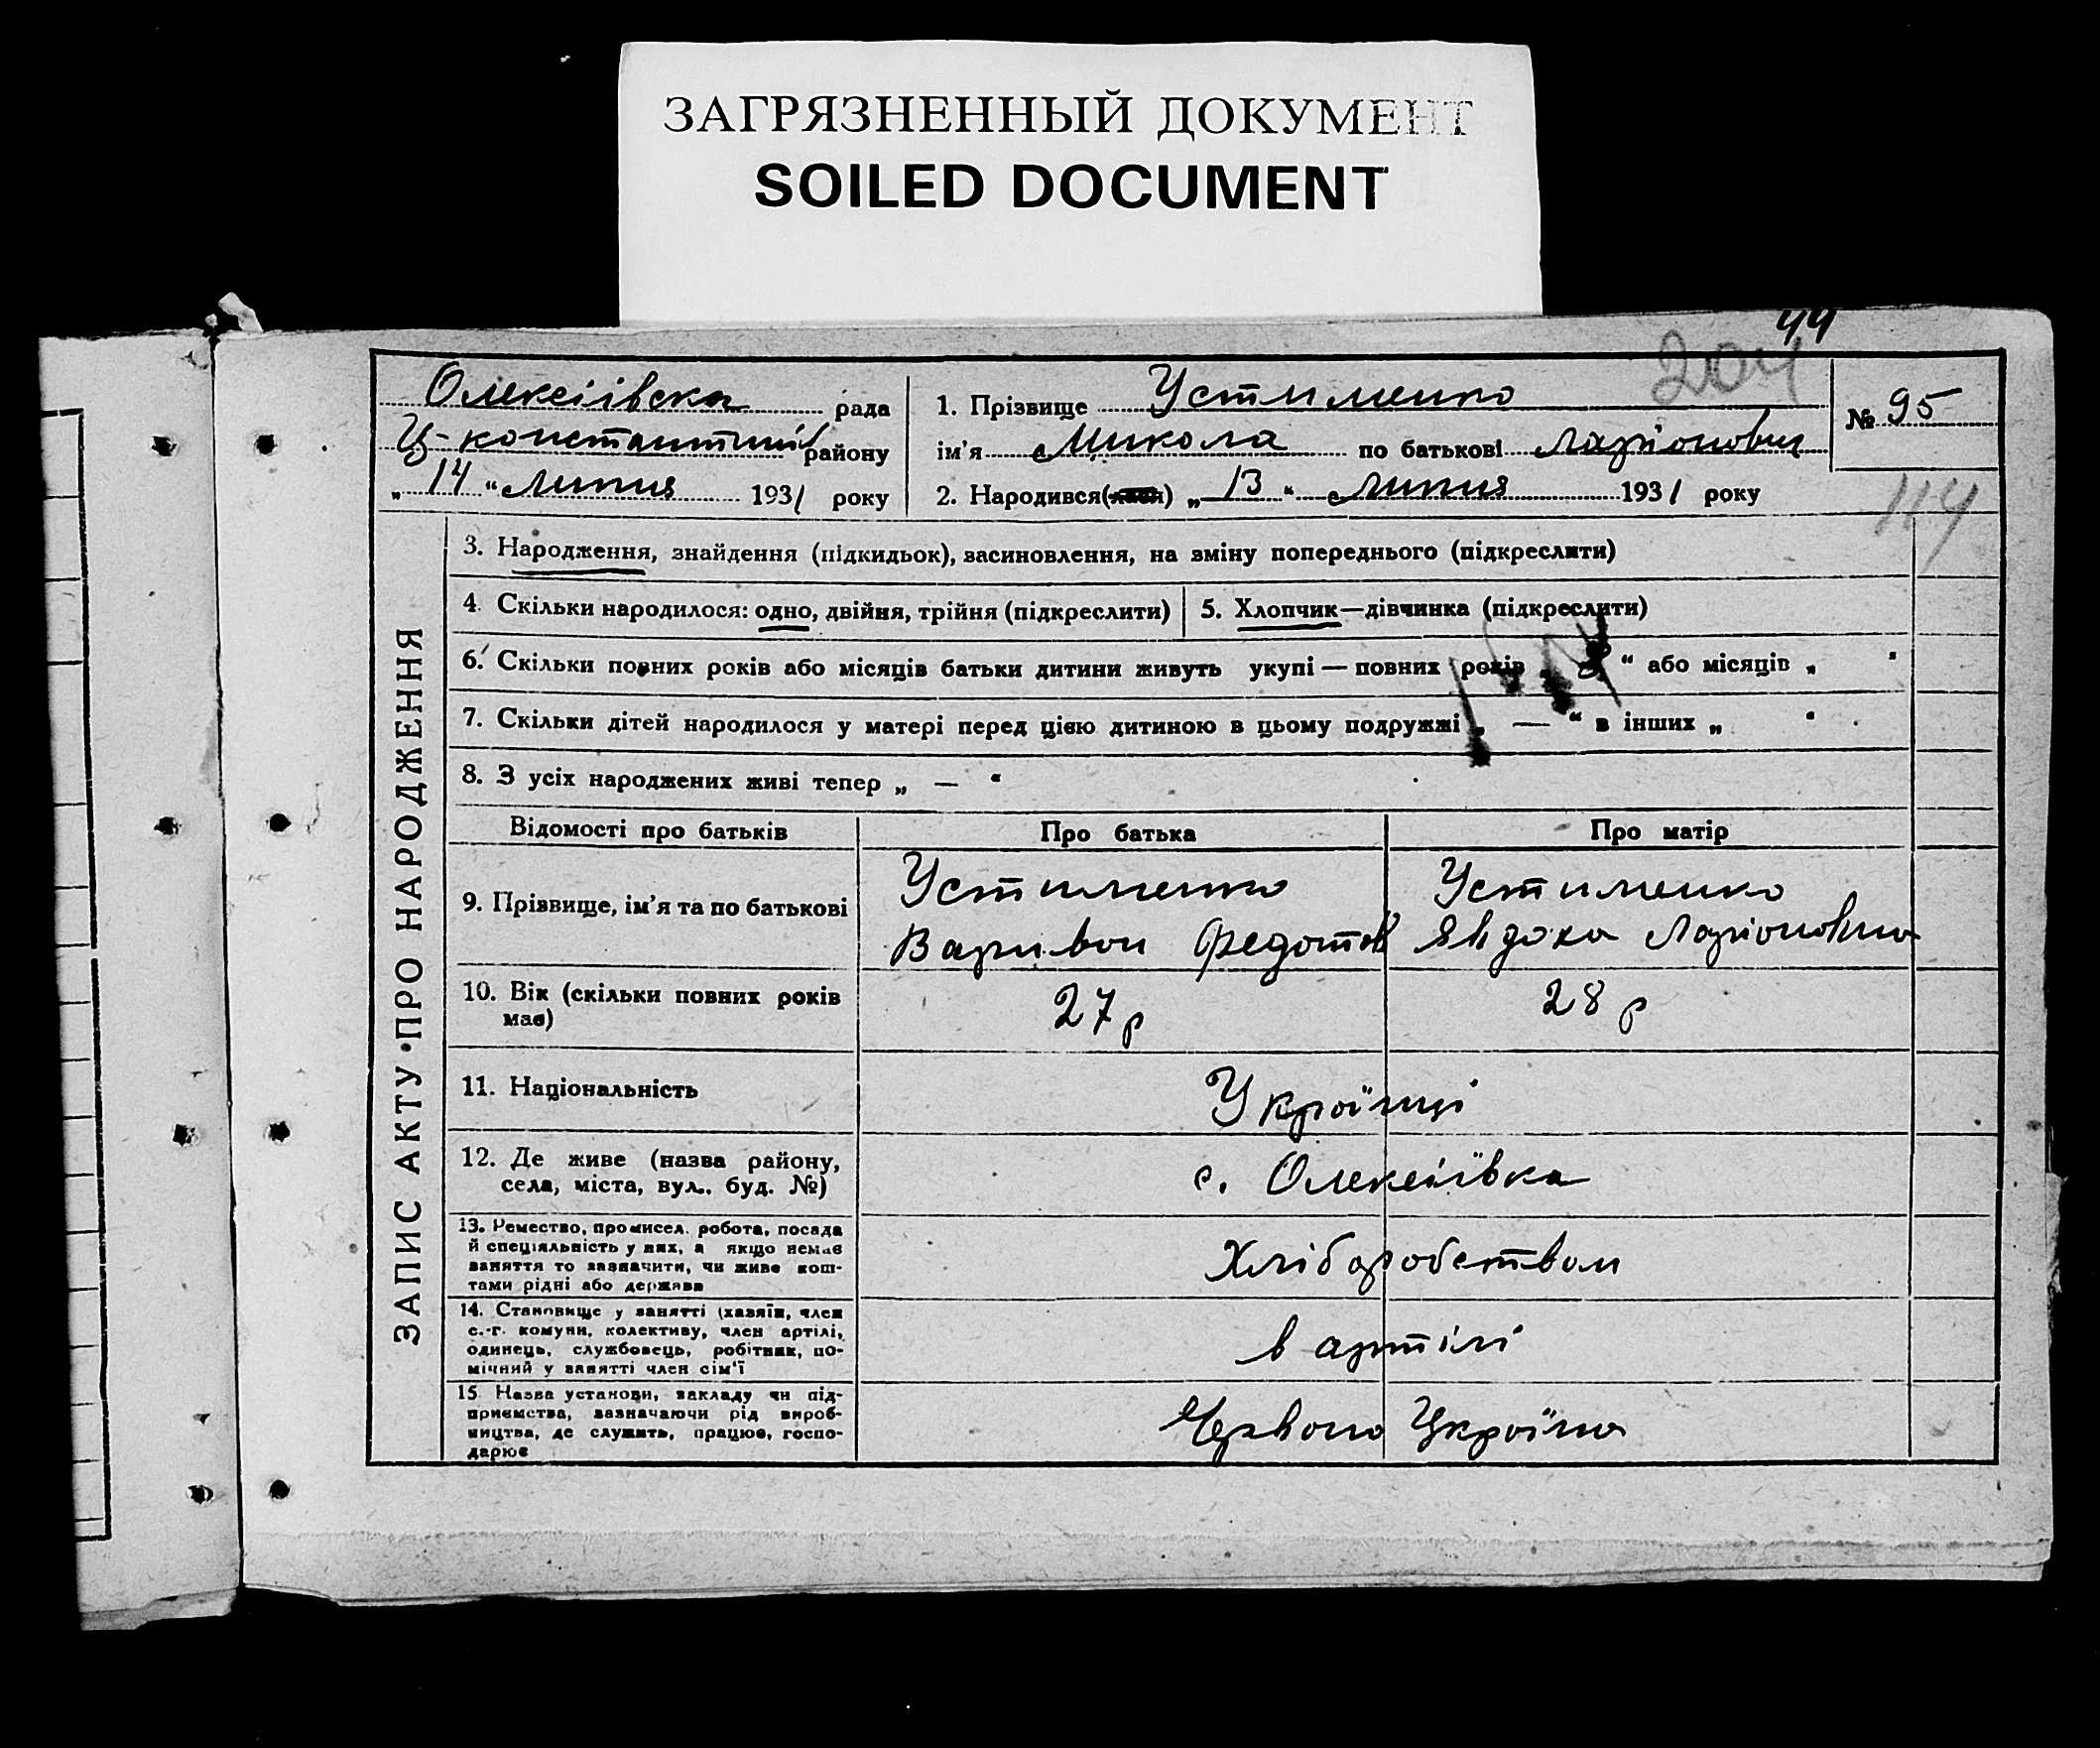 ЗАГРЯЗНЕННЫЙ ДОКУМЕНТ
SOILED DOCUMENT
44
204
Олексіівска рада
1. Прізвище Устименко
№ 95
Ц-константинів району
ім'я Микола по батькові Ларіонович
„14“ Липня 1931 року
2. Народився(лася) „13“ Липня 1931 року
114
ЗАПИС АКТУ ПРО НАРОДЖЕННЯ
3. Народження, знайдення (підкидьок), засиновлення, на зміну попереднього (підкреслити)
4. Скільки народилося: одно, двійня, трійня (підкреслити)
5. Хлопчик—дівчинка (підкреслити)
6. Скільки повних років або місяців батьки дитини живуть укупі — повних років „ “ або місяців „ “
7. Скільки дітей народилося у матері перед цією дитиною в цьому подружжі „ — “ в інших „ “
8. З усіх народжених живі тепер „ — “
Відомості про батьків
Про батька
Про матір
9. Прізвище, ім'я та по батькові
Устименко
Варивон Федотов
Устименко
Явдоха Ларіоновна
10. Вік (скільки повних років
має)
27 р
28 р
11. Національність
Українці
12. Де живе (назва району,
села, міста, вул., буд. №)
с. Олексіївка
13. Ремество, промисел, робота, посада
й спеціяльність у них, а якщо немає
заняття то зазначити, чи живе кош-
тами рідні або держава
Хліборобством
14. Становище у занятті (хазяїн, член
с.-г. комуни, колективу, член артілі,
одинець, службовець, робітник, по-
мічний у занятті член сім'ї
в артілі
15 Назва установи, закладу чи під-
приємства, зазначаючи рід вироб-
ництва, де служить, працює, госпо-
дарює
Червона Україна